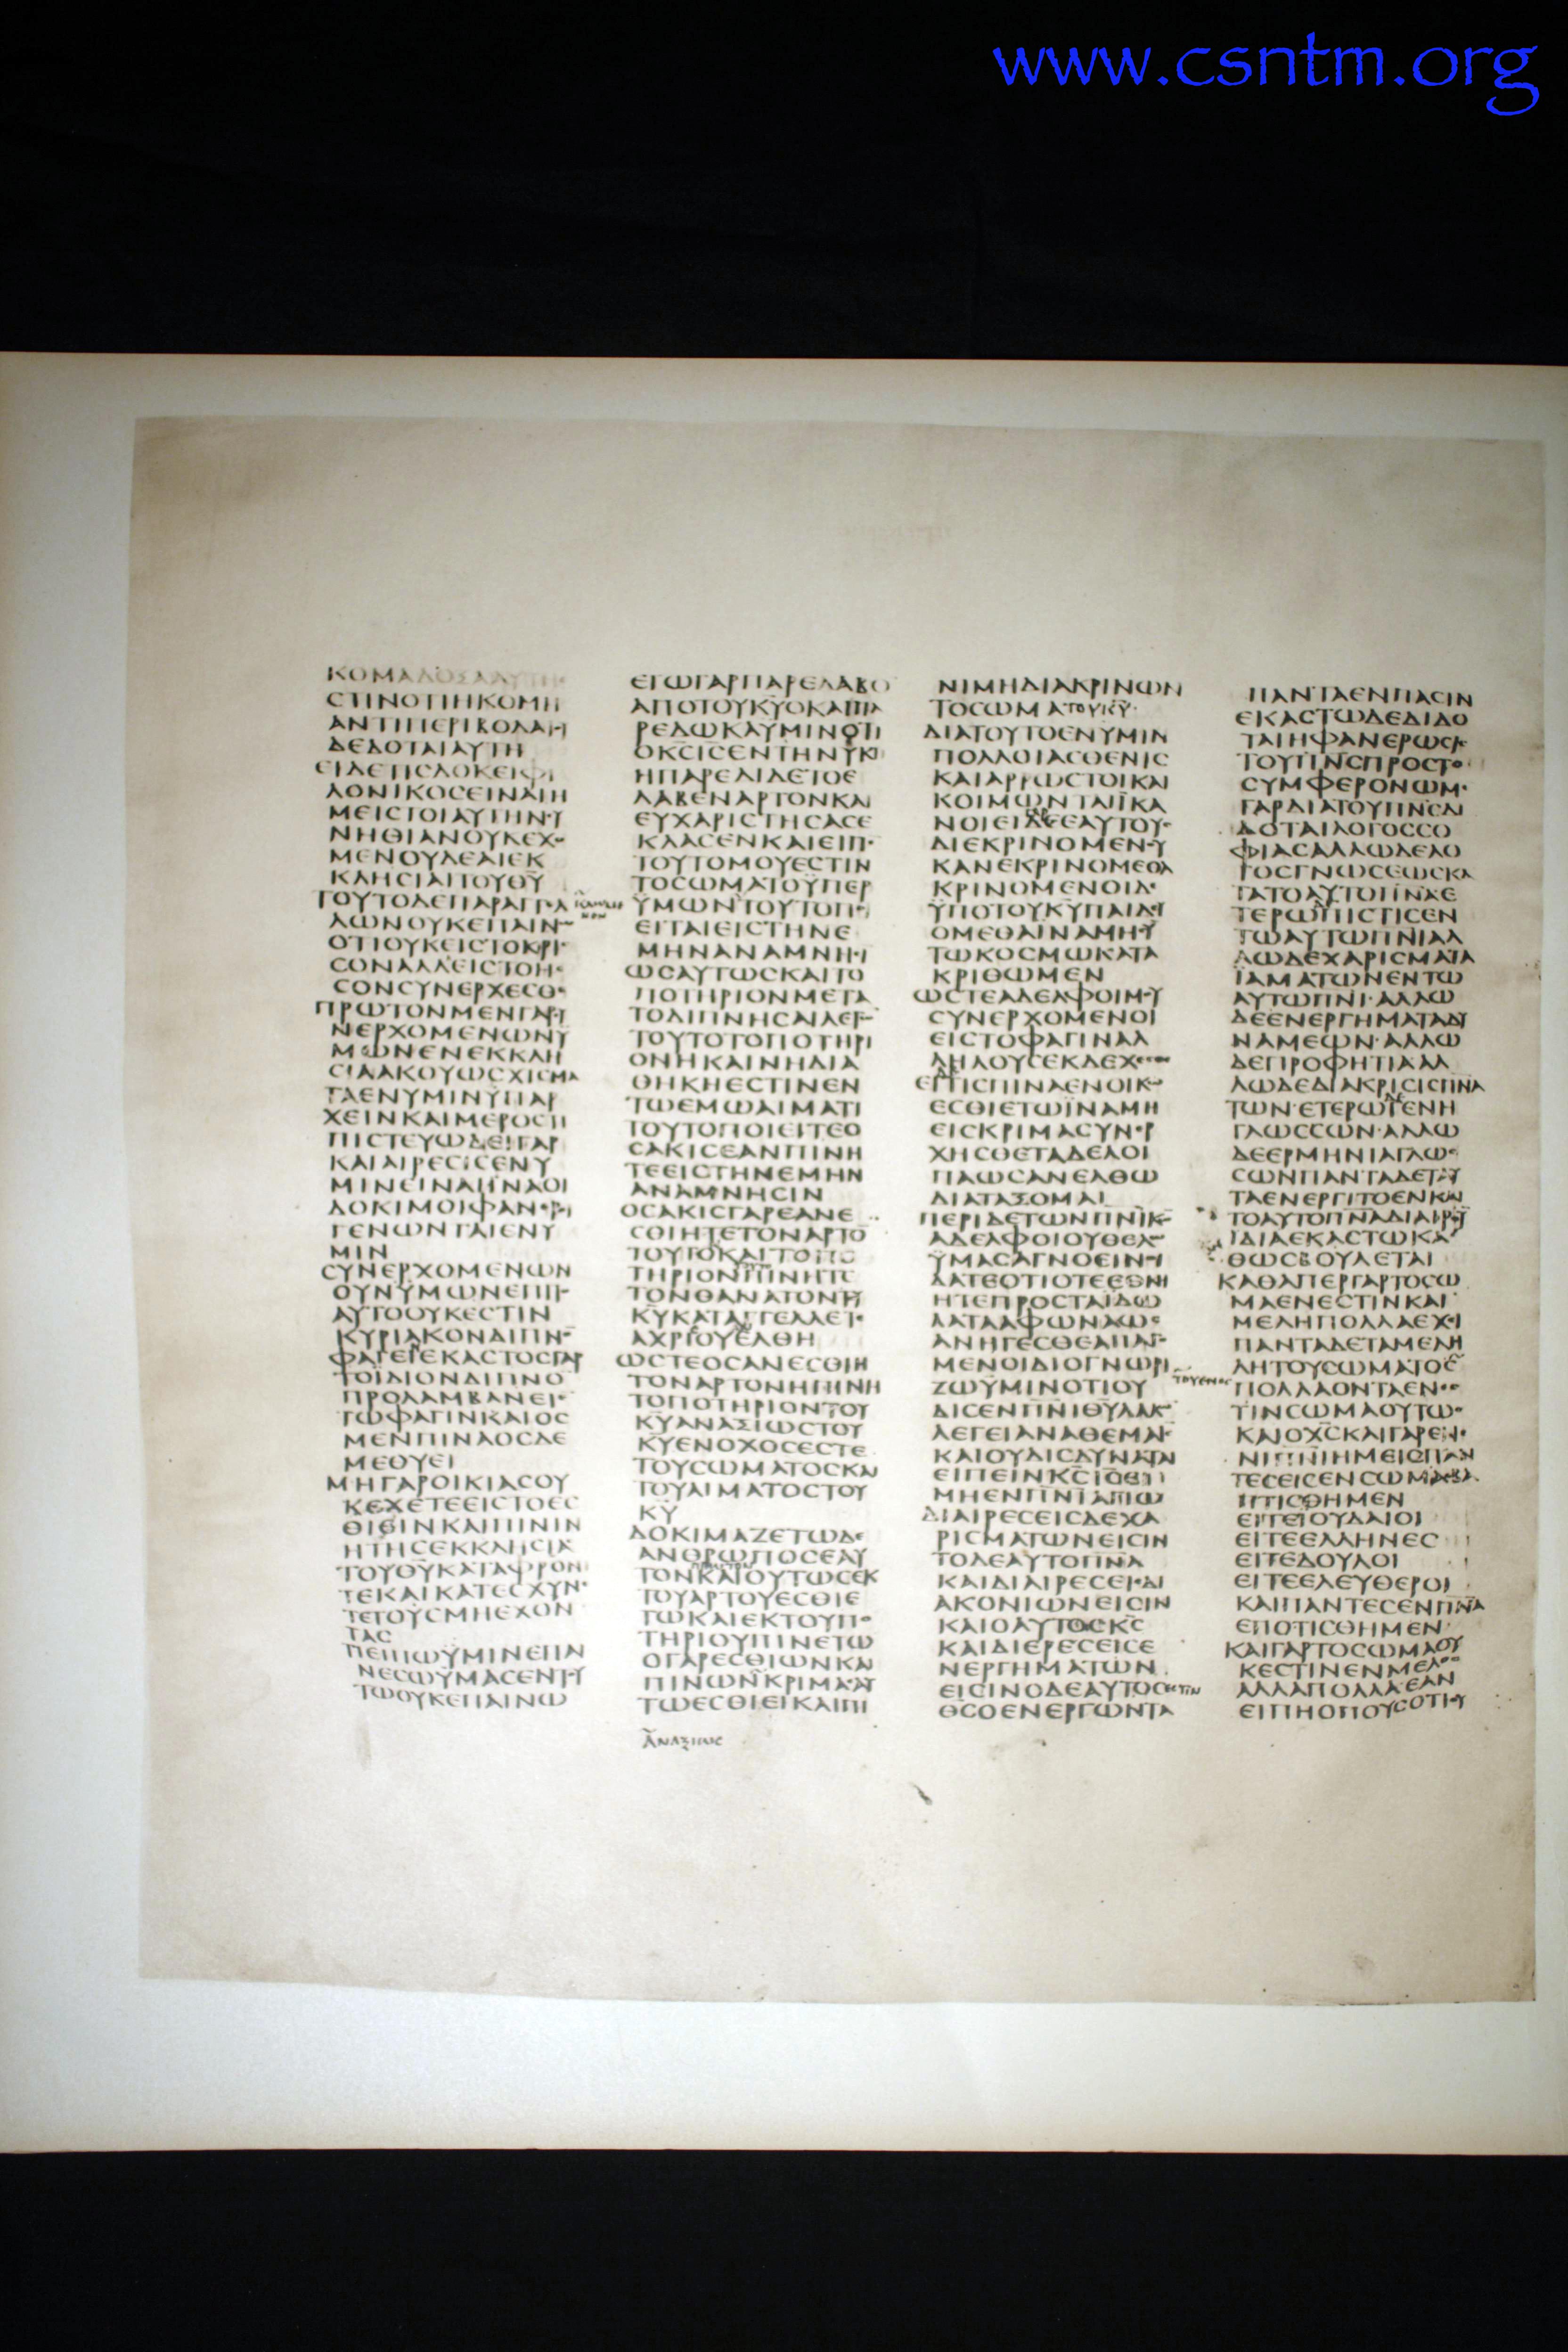 www.csntm.org
ΚΟΜΑ
ϹΤΙΝΟΤΙΗΚΟΜΗ
ΑΝΤΙΠΕΡΙΒΟΛΑΙ
ΔΕΔΟΤΑΙΑΥΤΗ
ΕΙΔΕΤΙϹΔΟΚΕΙΦΙ
ΛΟΝΙΚΟϹΕΙΝΑΙΗ
ΜΕΙϹΤΟΙΑΥΤΗΝϹΥ
ΝΗΘΙΑΝΟΥΚΕΧΟ
ΜΕΝΟΥΔΕΑΙΕΚ
ΚΛΗϹΙΑΙΤΟΥΘΥ
ΤΟΥΤΟΔΕΠΑΡΑΓΓΕΛ
ΛΩΝΟΥΚΕΠΑΙΝΩ
ΟΤΙΟΥΚΕΙϹΤΟΚΡΙϹ
ϹΟΝΑΛΛΕΙϹΤΟΗϹ
ϹΟΝϹΥΝΕΡΧΕϹΘΕ
ΠΡΩΤΟΝΜΕΝΓΑΡϹΥ
ΝΕΡΧΟΜΕΝΩΝΥ
ΜΩΝΕΝΕΚΚΛΗ
ϹΙΑΑΚΟΥΩϹΧΙϹΜΑ
ΤΑΕΝΥΜΙΝΥΠΑΡ
ΧΕΙΝΚΑΙΜΕΡΟϹΤΙ
ΠΙϹΤΕΥΩΔΕΙΓΑΡ
ΚΑΙΑΙΡΕϹΙϹΕΝΥ
ΜΙΝΕΙΝΑΙΙΝΑΟΙ
ΔΟΚΙΜΟΙΦΑΝΕΡΟΙ
ΓΕΝΩΝΤΑΙΕΝΥ
ΜΙΝ
ϹΥΝΕΡΧΟΜΕΝΩΝ
ΟΥΝΥΜΩΝΕΠΙΤ
ΑΥΤΟΟΥΚΕϹΤΙΝ
ΚΥΡΙΑΚΟΝΔΙΠΝΟ
ΦΑΓΕΙΕΚΑϹΤΟϹΓΑΡ
ΤΟΙΔΙΟΝΔΙΠΝΟ
ΠΡΟΛΑΜΒΑΝΕΙΕ
ΤΩΦΑΓΙΝΚΑΙΟϹ
ΜΕΝΠΙΝΑΟϹΔΕ
ΜΕΘΥΕΙ
ΜΗΓΑΡΟΙΚΙΑϹΟΥ
ΚΕΧΕΤΕΕΙϹΤΟΕϹ
ΘΙΕΙΝΚΑΙΠΙΝΙΝ
ΗΤΗϹΕΚΚΛΗϹΙΑ
ΤΟΥΘΥΚΑΤΑΦΡΟΝΙ
ΤΕΚΑΙΚΑΤΕϹΧΥΝΕ
ΤΕΤΟΥϹΜΗΕΧΟΝ
ΤΑϹ
ΤΙΕΙΠΩΥΜΙΝΕΠΑΙ
ΝΕϹΩΥΜΑϹΕΝΤΟΥ
ΤΩΟΥΚΕΠΑΙΝΩ
ΕΓΩΓΑΡΠΑΡΕΛΑΒΟ
ΑΠΟΤΟΥΚΥΟΚΑΙΠΑ
ΡΕΔΩΚΑΥΜΙΝΟΤΙ
ΟΚϹΙϹΕΝΤΗΝΥΚΙ
ΗΠΑΡΕΔΙΔΕΤΟΕ
ΛΑΒΕΝΑΡΤΟΝΚΑΙ
ΕΥΧΑΡΙϹΤΗϹΑϹΕ
ΚΛΑϹΕΝΚΑΙΕΙΠΕ
ΤΟΥΤΟΜΟΥΕϹΤΙΝ
ΤΟϹΩΜΑΤΟΥΠΕΡ
ΥΜΩΝΤΟΥΤΟΠΟΙ
ΕΙΤΑΙΕΙϹΤΗΝΕ
ΜΗΝΑΝΑΜΝΗϹΙ
ΩϹΑΥΤΩϹΚΑΙΤΟ
ΠΟΤΗΡΙΟΝΜΕΤΑ
ΤΟΔΙΠΝΗϹΑΙΛΕΓΩ
ΤΟΥΤΟΤΟΠΟΤΗΡΙ
ΟΝΗΚΑΙΝΗΔΙΑ
ΘΗΚΗΕϹΤΙΝΕΝ
ΤΩΕΜΩΑΙΜΑΤΙ
ΤΟΥΤΟΠΟΙΕΙΤΕΟ
ϹΑΚΙϹΕΑΝΠΙΝΗ
ΤΕΕΙϹΤΗΝΕΜΗΝ
ΑΝΑΜΝΗϹΙΝ
ΟϹΑΚΙϹΓΑΡΕΑΝΕ
ϹΘΙΗΤΕΤΟΝΑΡΤΟ
ΤΟΥΤΟΚΑΙΤΟΠΟ
ΤΗΡΙΟΝΠΙΝΗΤΕ
ΤΟΝΘΑΝΑΤΟΝΤΟΥ
ΚΥΚΑΤΑΓΓΕΛΛΕΤΕ
ΑΧΡΙΟΥΕΛΘΗ
ΩϹΤΕΟϹΑΝΕϹΘΙΗ
ΤΟΝΑΡΤΟΝΗΠΙΝΗ
ΤΟΠΟΤΗΡΙΟΝΤΟΥ
ΚΥΑΝΑΞΙΩϹΤΟΥ
ΚΥΕΝΟΧΟϹΕϹΤΕ
ΤΟΥϹΩΜΑΤΟϹΚΑΙ
ΤΟΥΑΙΜΑΤΟϹΤΟΥ
ΚΥ
ΔΟΚΙΜΑΖΕΤΩΔΕ
ΑΝΘΡΩΠΟϹΕΑΥ
ΤΟΝΚΑΙΟΥΤΩϹΕΚ
ΤΟΥΑΡΤΟΥΕϹΘΙΕ
ΤΩΚΑΙΕΚΤΟΥΠΟ
ΤΗΡΙΟΥΠΙΝΕΤΩ
ΟΓΑΡΕϹΘΙΩΝΚΑΙ
ΠΙΝΩΝΚΡΙΜΑΕΑΥ
ΤΩΕϹΘΙΕΙΚΑΙΠΙ
ΑΝΑΞΙΩϹ
ΝΙΜΗΔΙΑΚΡΙΝΩΝ
ΤΟϹΩΜΑΤΟΥΚΥ
ΔΙΑΤΟΥΤΟΕΝΥΜΙΝ
ΠΟΛΛΟΙΑϹΘΕΝΙϹ
ΚΑΙΑΡΡΩϹΤΟΙΚΑΙ
ΚΟΙΜΩΝΤΑΙΪΚΑ
ΝΟΙΕΙΔΕΕΑΥΤΟΥϹ
ΔΙΕΚΡΙΝΟΜΕΝΟΥ
ΚΑΝΕΚΡΙΝΟΜΕΘΑ
ΚΡΙΝΟΜΕΝΟΙΔΕ
ΥΠΟΤΟΥΚΥΠΑΙΔΕΥ
ΟΜΕΘΑΙΝΑΜΗϹΥ
ΤΩΚΟϹΜΩΚΑΤΑ
ΚΡΙΘΩΜΕΝ
ΩϹΤΕΑΔΕΛΦΟΙΜΟΥ
ϹΥΝΕΡΧΟΜΕΝΟΙ
ΕΙϹΤΟΦΑΓΙΝΑΛ
ΛΗΛΟΥϹΕΚΔΕΧΕϹΘΕ
ΕΙΤΙϹΠΙΝΑΕΝΟΙΚΩ
ΕϹΘΙΕΤΩΪΝΑΜΗ
ΕΙϹΚΡΙΜΑϹΥΝΕΡ
ΧΗϹΘΕΤΑΔΕΛΟΙ
ΠΑΩϹΑΝΕΛΘΩ
ΔΙΑΤΑΞΟΜΑΙ
ΠΕΡΙΔΕΤΩΝΠΝΙΚΩ
ΑΔΕΛΦΟΙΟΥΘΕΛΩ
ΥΜΑϹΑΓΝΟΕΙΝΟΙ
ΔΑΤΕΟΤΙΟΤΕΕΘΝΗ
ΗΤΕΠΡΟϹΤΑΙΔΩ
ΛΑΤΑΑΦΩΝΑΩϹ
ΑΝΗΓΕϹΘΕΑΠΑΓΟ
ΜΕΝΟΙΔΙΟΓΝΩΡΙ
ΖΩΥΜΙΝΟΤΙΟΥ
ΔΙϹΕΝΠΝΙΘΥΛΑΛΩ
ΛΕΓΕΙΑΝΑΘΕΜΑΙϹ
ΚΑΙΟΥΔΙϹΔΥΝΑΤΑΙ
ΕΙΠΕΙΝΚϹΙϹΕΙ
ΜΗΕΝΠΝΙΑΓΙΩ
ΔΙΑΙΡΕϹΕΙϹΔΕΧΑ
ΡΙϹΜΑΤΩΝΕΙϹΙΝ
ΤΟΔΕΑΥΤΟΠΝΑ
ΚΑΙΔΙΑΙΡΕϹΕΙϹΔΙ
ΑΚΟΝΙΩΝΕΙϹΙΝ
ΚΑΙΟΑΥΤΟϹΚϹ
ΚΑΙΔΙΕΡΕϹΕΙϹΕ
ΝΕΡΓΗΜΑΤΩΝ
ΕΙϹΙΝΟΔΕΑΥΤΟϹ
ΘϹΟΕΝΕΡΓΩΝΤΑ
ΠΑΝΤΑΕΝΠΑϹΙΝ
ΕΚΑϹΤΩΔΕΔΙΔΟ
ΤΑΙΗΦΑΝΕΡΩϹΙϹ
ΤΟΥΠΝϹΠΡΟϹΤΟ
ϹΥΜΦΕΡΟΝΩΜΕ
ΓΑΡΔΙΑΤΟΥΠΝϹΔΙ
ΔΟΤΑΙΛΟΓΟϹϹΟ
ΦΙΑϹΑΛΛΩΔΕΛΟ
ΓΟϹΓΝΩϹΕΩϹΚΑ
ΤΑΤΟΑΥΤΟΠΝΑΕ
ΤΕΡΩΠΙϹΤΙϹΕΝ
ΤΩΑΥΤΩΠΝΙΑΛ
ΛΩΔΕΧΑΡΙϹΜΑΤΑ
ΙΑΜΑΤΩΝΕΝΤΩ
ΑΥΤΩΠΝΙ·ΑΛΛΩ
ΔΕΕΝΕΡΓΗΜΑΤΑΔΥ
ΝΑΜΕΩΝ·ΑΛΛΩ
ΔΕΠΡΟΦΗΤΙΑΑΛ
ΛΩΔΕΔΙΑΚΡΙϹΙϹΠΝΑ
ΤΩΝ·ΕΤΕΡΩΓΕΝΗ
ΓΛΩϹϹΩΝ·ΑΛΛΩ
ΔΕΕΡΜΗΝΙΑΓΛΩϹ
ϹΩΝΠΑΝΤΑΔΕΤΑΥ
ΤΑΕΝΕΡΓΙΤΟΕΝΚΑΙ
ΤΟΑΥΤΟΠΝΑΔΙΑΙΡΟΥ
ΙΔΙΑΕΚΑϹΤΩΚΑ
ΘΩϹΒΟΥΛΕΤΑΙ
ΚΑΘΑΠΕΡΓΑΡΤΟϹΩ
ΜΑΕΝΕϹΤΙΝΚΑΙ
ΜΕΛΗΠΟΛΛΑΕΧΕΙ
ΠΑΝΤΑΔΕΤΑΜΕΛΗ
ΛΗΤΟΥϹΩΜΑΤΟϹ
ΤΟΥΕΝΟϹ
ΠΟΛΛΑΟΝΤΑΕΝ
ΤΙΝϹΩΜΑΟΥΤΩϹ
ΚΑΙΟΧϹΚΑΙΓΑΡΕΝΕ
ΝΙΠΝΙΗΜΕΙϹΠΑΝ
ΤΕϹΕΙϹΕΝϹΩΜΑΕΒΑ
ΠΤΙϹΘΗΜΕΝ
ΕΙΤΕΙΟΥΔΑΙΟΙ
ΕΙΤΕΕΛΛΗΝΕϹ
ΕΙΤΕΔΟΥΛΟΙ
ΕΙΤΕΕΛΕΥΘΕΡΟΙ
ΚΑΙΠΑΝΤΕϹΕΝΠΝΑ
ΕΠΟΤΙϹΘΗΜΕΝ
ΚΑΙΓΑΡΤΟϹΩΜΑΟΥ
ΚΕϹΤΙΝΕΝΜΕΛΟϹ
ΑΛΛΑΠΟΛΛΑΕΑΝ
ΕΙΠΗΟΠΟΥϹΟΤΙΟΥ